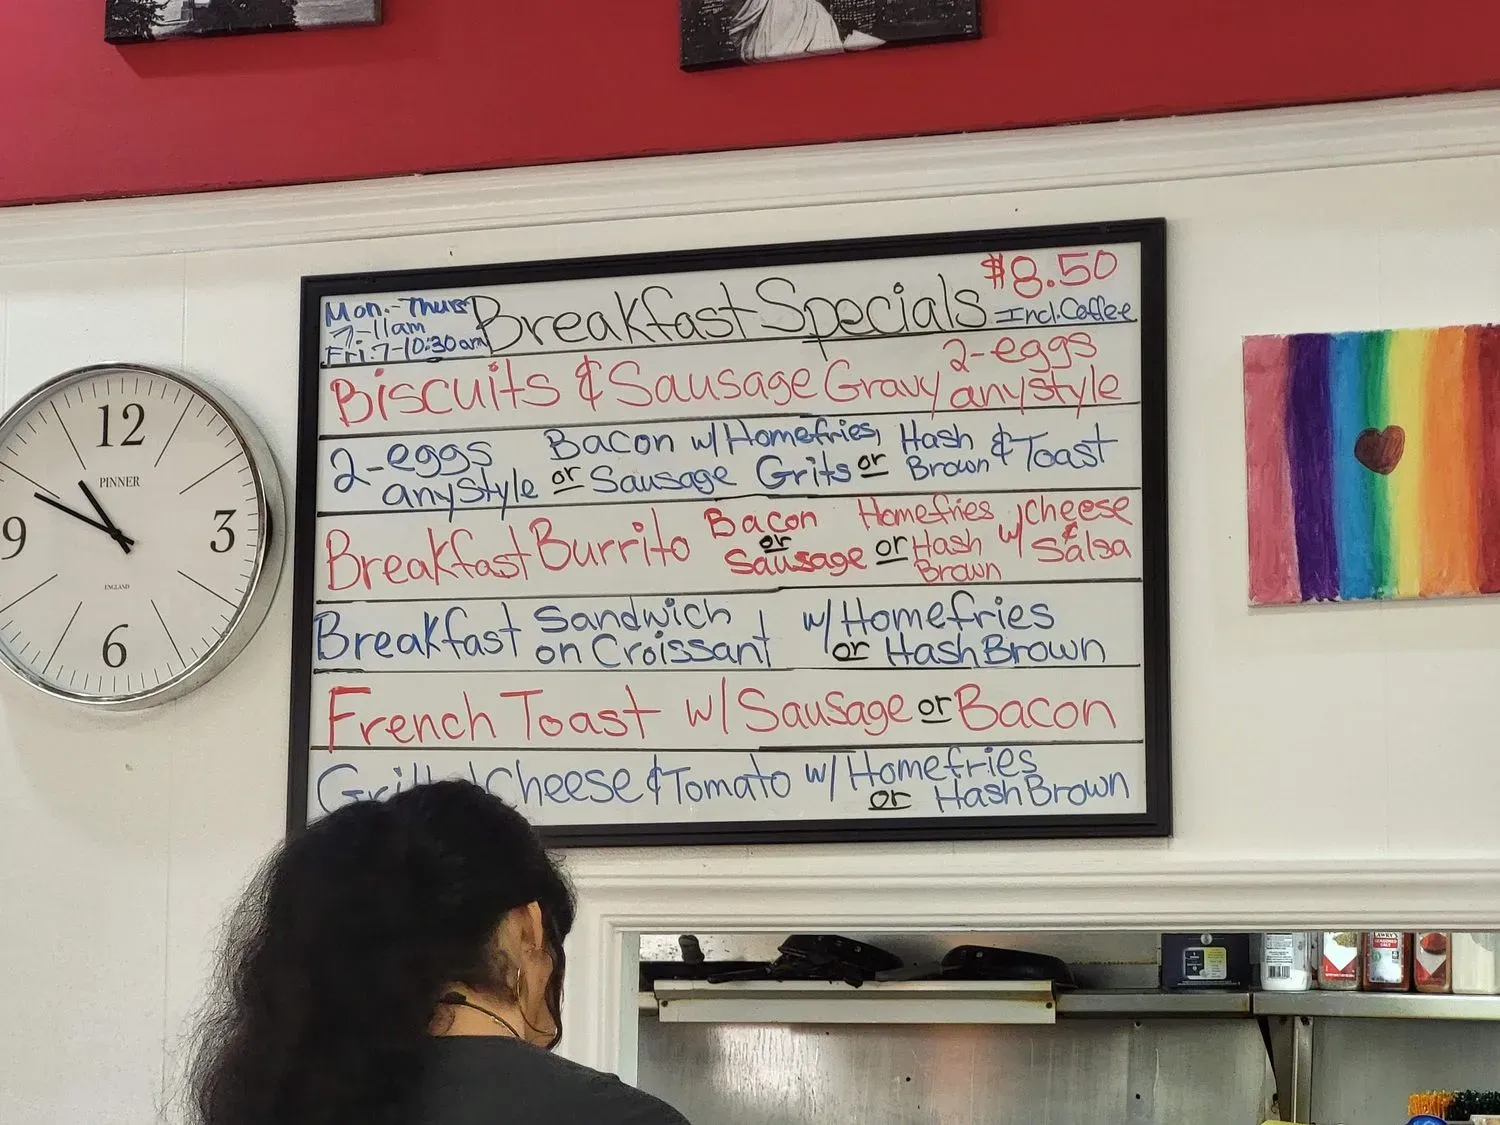 Mon.-Thurs
7-11am
Fri:7-10:30am
Breakfast Specials
$8.50
Incl.Coffee
Biscuits & Sausage Gravy 2-eggs
any style
2-eggs Bacon w/Homefries, Hash & Toast
any style or Sausage Grits or Brown
Breakfast Burrito Bacon Homefries w/ cheese
or or Hash &
Sausage Brown Salsa
Breakfast Sandwich w/Homefries
on Croissant or HashBrown
French Toast w/Sausage or Bacon
Cheese & Tomato w/Homefries
or HashBrown
12
PINNER
9
3
ENGLAND
6